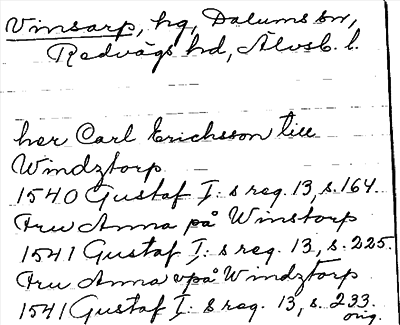 Vinsarp, hg, Dalums sn,
Redvägs hd, Älvsb. l.
her Carl Erichsson till
Windztorp
1540 Gustaf I: s reg. 13, s. 164.
Fru Anna på Winstorp
1541 Gustaf I: s reg. 13, s. 225.
Fru Anna vpå Windztorp
1541 Gustaf I: s reg. 13, s. 233.
orig.